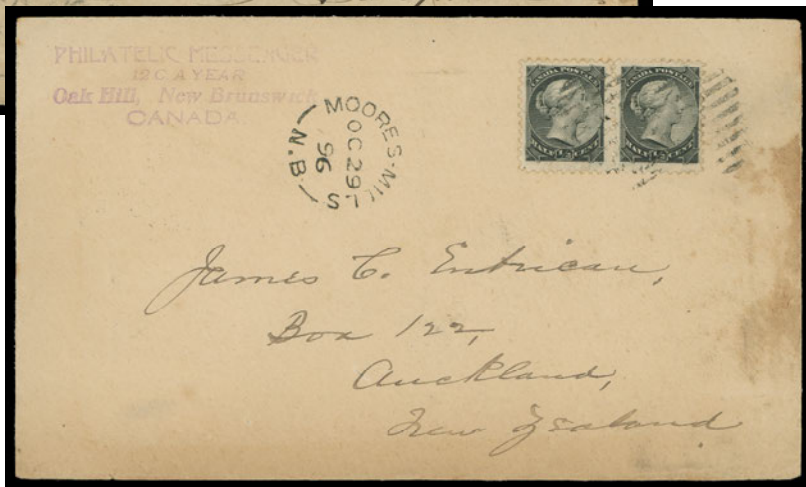 PHILATELIC MESSENGER
12C A YEAR
Oak Hill, New Brunswick
CANADA
MOORES-MILLS
OC 29
96
N.B.
CANADA POSTAGE
HALF (1/2) CENT
CANADA POSTAGE
HALF (1/2) CENT
James C. Entrican,
Box 122,
Auckland,
New Zealand